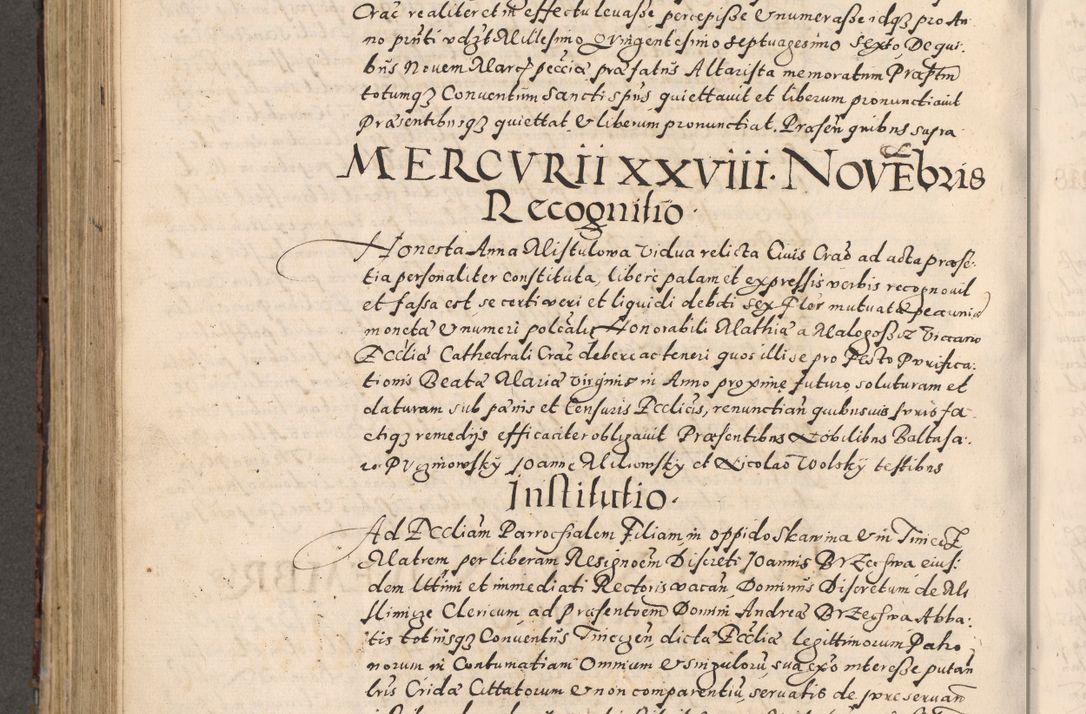 Crac̃ realiter et in effectu levasse percepisse & numerasse idqȝ pro An
no pñti vdzt Millesimo Qvingentesimo septuagesimo sexto De qui.
bus Novem Marc̃ peccia præfatus Altarista memoratum Præptm̃
totumqȝ Conventum Sancti Spũs quiettavit et liberum pronunctiavit
Præsentibusqȝ quiettat & liberum pronunctiat. Præseñ quibus supra
MERCVRII XXVIII. NOVEbris
Recognitio.
Honesta Anna Mistulowa vidua relicta Civis Crac̃ ad acta præse-
tia personaliter constituta, liberè palam et expressis verbis recognovit
et fassa est se certi veri et liquidi debiti sex flor mutuatæ pecuniæ
monetæ & numeri polcalis Honorabili Mathiæ a Malogosscz Viccario
Eccliæ Cathedrali Crac̃ debere ac teneri quos illi se pro Festo Purifica.
tionis Beatæ Mariæ virginis in Anno proxime futuro soluturam et
daturam sub pænis et Censuris Ecclicis, renunctiañ quibusuis iuris fa.
ctiqȝ remedijs efficaciter obligavit Præsentibus Nobilibus Baltasa.
ro Puczniowsky Joanne Miliowsky et Nicolao Wolsky testibus
Institutio.
Ad Eccliam Parrochialem Filiam in oppido Skawina & in Tinecz
Matrem per liberam Resignoem Discreti Joannis Brzechwa eius.
dem Ultimi et immediati Rectoris vacañ, Dominus Discretum de
Clericum ad præsentoem Domini Andreæ Brzechwa Abba.
tis totiusqȝ Conventus Tineczeñ, dictæ Eccliæ legittimorum Patro
norum in Contumatiam Omnium & singulorũ sua ex̃o interesse putañ
lris Cridæ Cittatorum & non comparentiũ, servatis de jure servan